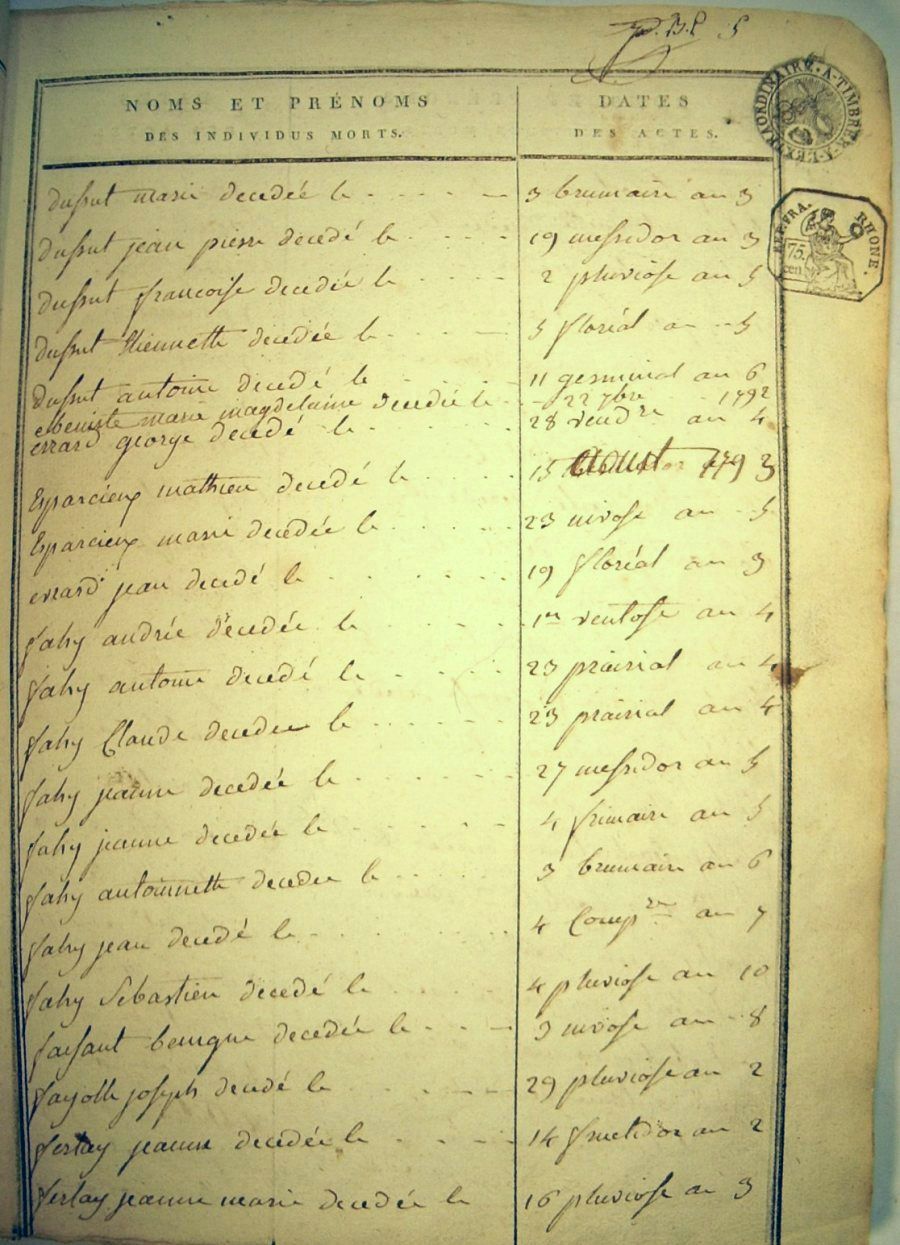 p. B. P 5
NOMS ET PRÉNOMS
DES INDIVIDUS MORTS.
DATES
DES ACTES.
A-TIMBRER-A-L'EXTRAORDINAIRE
REP. FRA. RHONE.
75. cen.
dussut marie decedée le 3 brumaire an 3
dussut jean pierre decedé le 19 messidor an 3
dussut francoise decedée le 2 pluviose an 5
dussut Etiennette decedée le 5 floréal an 5
dussut antoine decedé le 11 germinal an 6
ebeniste marie magdelaine decedée le 22 7bre 1792
errard george decedé le 28 vendre an 4
Esparcieux mathieu decedé le 15 aout 1793
Esparcieux marie decedée le 23 nivose an 5
evrard jean decedé le 19 floréal an 3
fahy andrée décedée le 1er ventose an 4
fahy antoine decedé le 23 prairial an 4
fahy Claude decedee le 23 prairial an 4
fahy jeanne decedée le 27 messidor an 5
fahy jeanne decedée le 4 frimaire an 5
fahy antoinnette decedee le 3 brumaire an 6
fahy jean decedé le 4 Compre an 7
fahy Sébastien decedé le 4 pluviose an 10
faisant benigne decedée le 3 nivose an 8
fayolle joseph decedé le 29 pluviose an 2
ferlay jeanne decedée le 14 fructidor an 2
ferlay jeanne marie decedée le 16 pluviose an 3